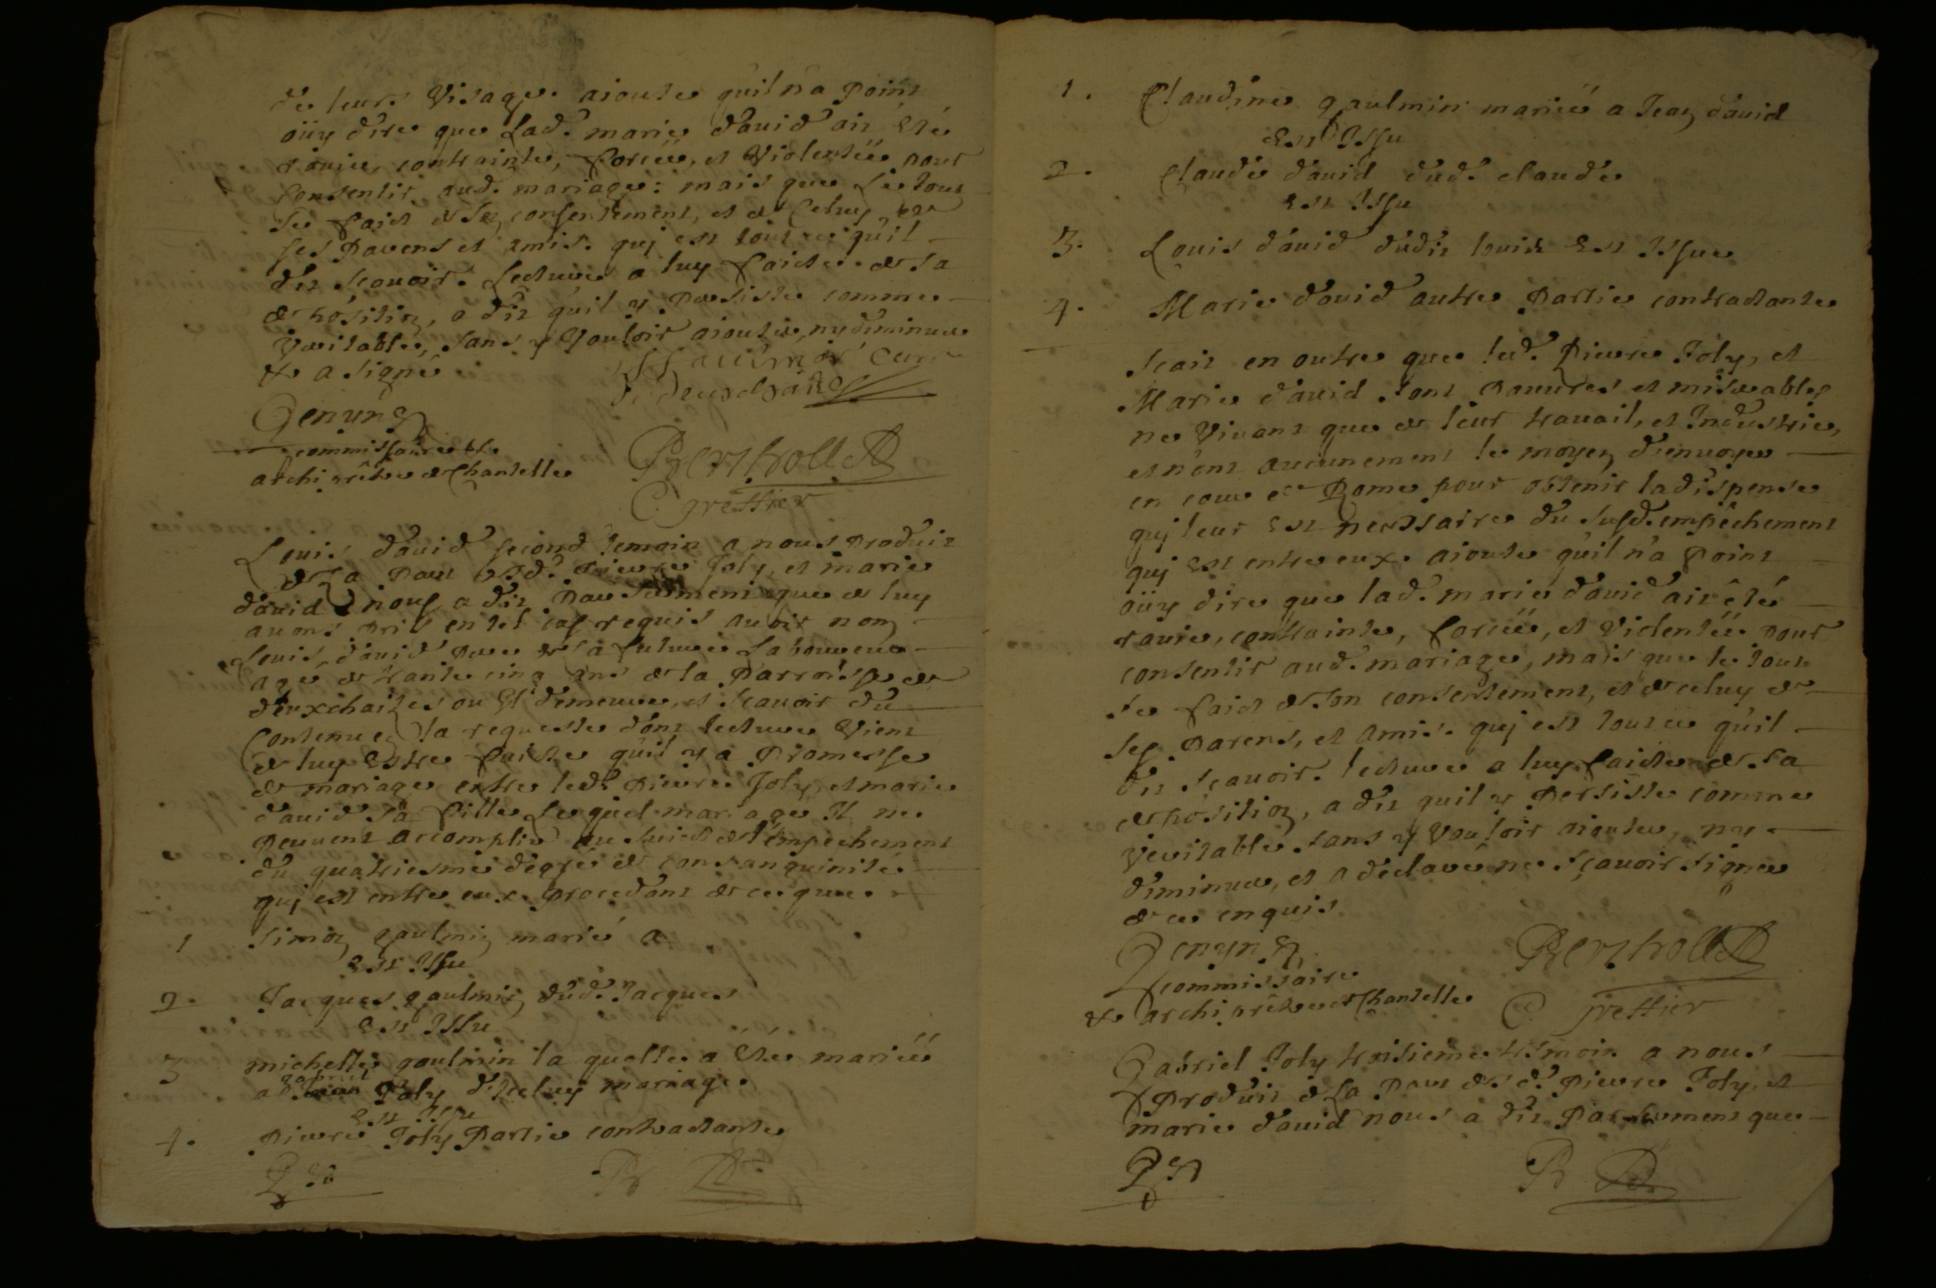 de leurs Visages. aiouste qu'il n'a point
oüy dire que lad.e marie dauid ait Esté
rauie, contrainte, forcée, et Violentée pour
consentir aud. mariage: mais que le tout
se faict de son consentement, et de celuy de
ses parens et amis. quj est tout ce qu'il
dit scauoir. lecture a luy faicte de sa
deposition, a dit qu'il y persiste comme
veritable, sans y vouloir aiouster, ny diminuer
et a signé
curé de deuxchaizes
commissaire et
archiprêtre de Chantelle
Bertholet
greffier
Louis dauid second temoin a nous produit
de la part desd. Pierre Joly, et marie
dauid nous a dit par serment que de luy
auons pris en tel cas requis auoir nom
Louis dauid pere de la future laboureur
age de trante cinq ans de la parroisse de
deuxchaizes ou Il demeure, et scauoir du
contenu en la requeste dont lecture vient
de luy Estre faicte qu'il y a promesse
de mariage entre led. pierre Joly et marie
dauid sa fille lequel mariage Il ne
peuuent accomplir au suict de l'empechement
du quatriesme degré de consanguinité
quj est entre eux. procedant de ce que
1 Simon gaulmin marié a
Est Issu
2. Jacques gaulmin dud. Jacques
Est Issu
3 michelle gaulmin la quelle a Esté mariée
a gabriel Joly d'Jceluy mariage
est Issu
4. pierre Joly partie contractante
1. Claudine gaulmin mariée a Jean dauid
Est Issu
2. Claude dauid dud. claude
Est Issu
3. Louis dauid dudit louis Est Issue
4. Marie dauid autre partie contractante
Scait en outre que led. Pierre Joly, et
Marie dauid sont pauures et miserables
ne Viuant que de leur trauail, et Industrie,
et n'ont aucunement le moyen d'enuoyer
en cour de Rome pour obtenir la dispense
quj leur Est necessaire du susd. empêchement
quj Est entre eux. aiouste qu'il n'a point
oüy dire que lad.e marie dauid ait êté
rauie, contrainte, forcée, et violentée pour
consentir aud. mariage, mais que le tout
se faict de son consentement, et de celuy de
ses parens, et amis. quj est tout ce qu'il
dit scauoir. lecture a luy faicte de sa
deposition, a dit qu'il y persiste comme
veritable sans y vouloir aiouter, ny
diminuer, et a declaré ne scauoir signer
de ce enquis
commissaire
et archiprêtre de Chantelle
Bertholet
greffier
Gabriel Joly troisieme temoin a nous
produit de la part desd. Pierre Joly, et
marie dauid nous a dit par serment que